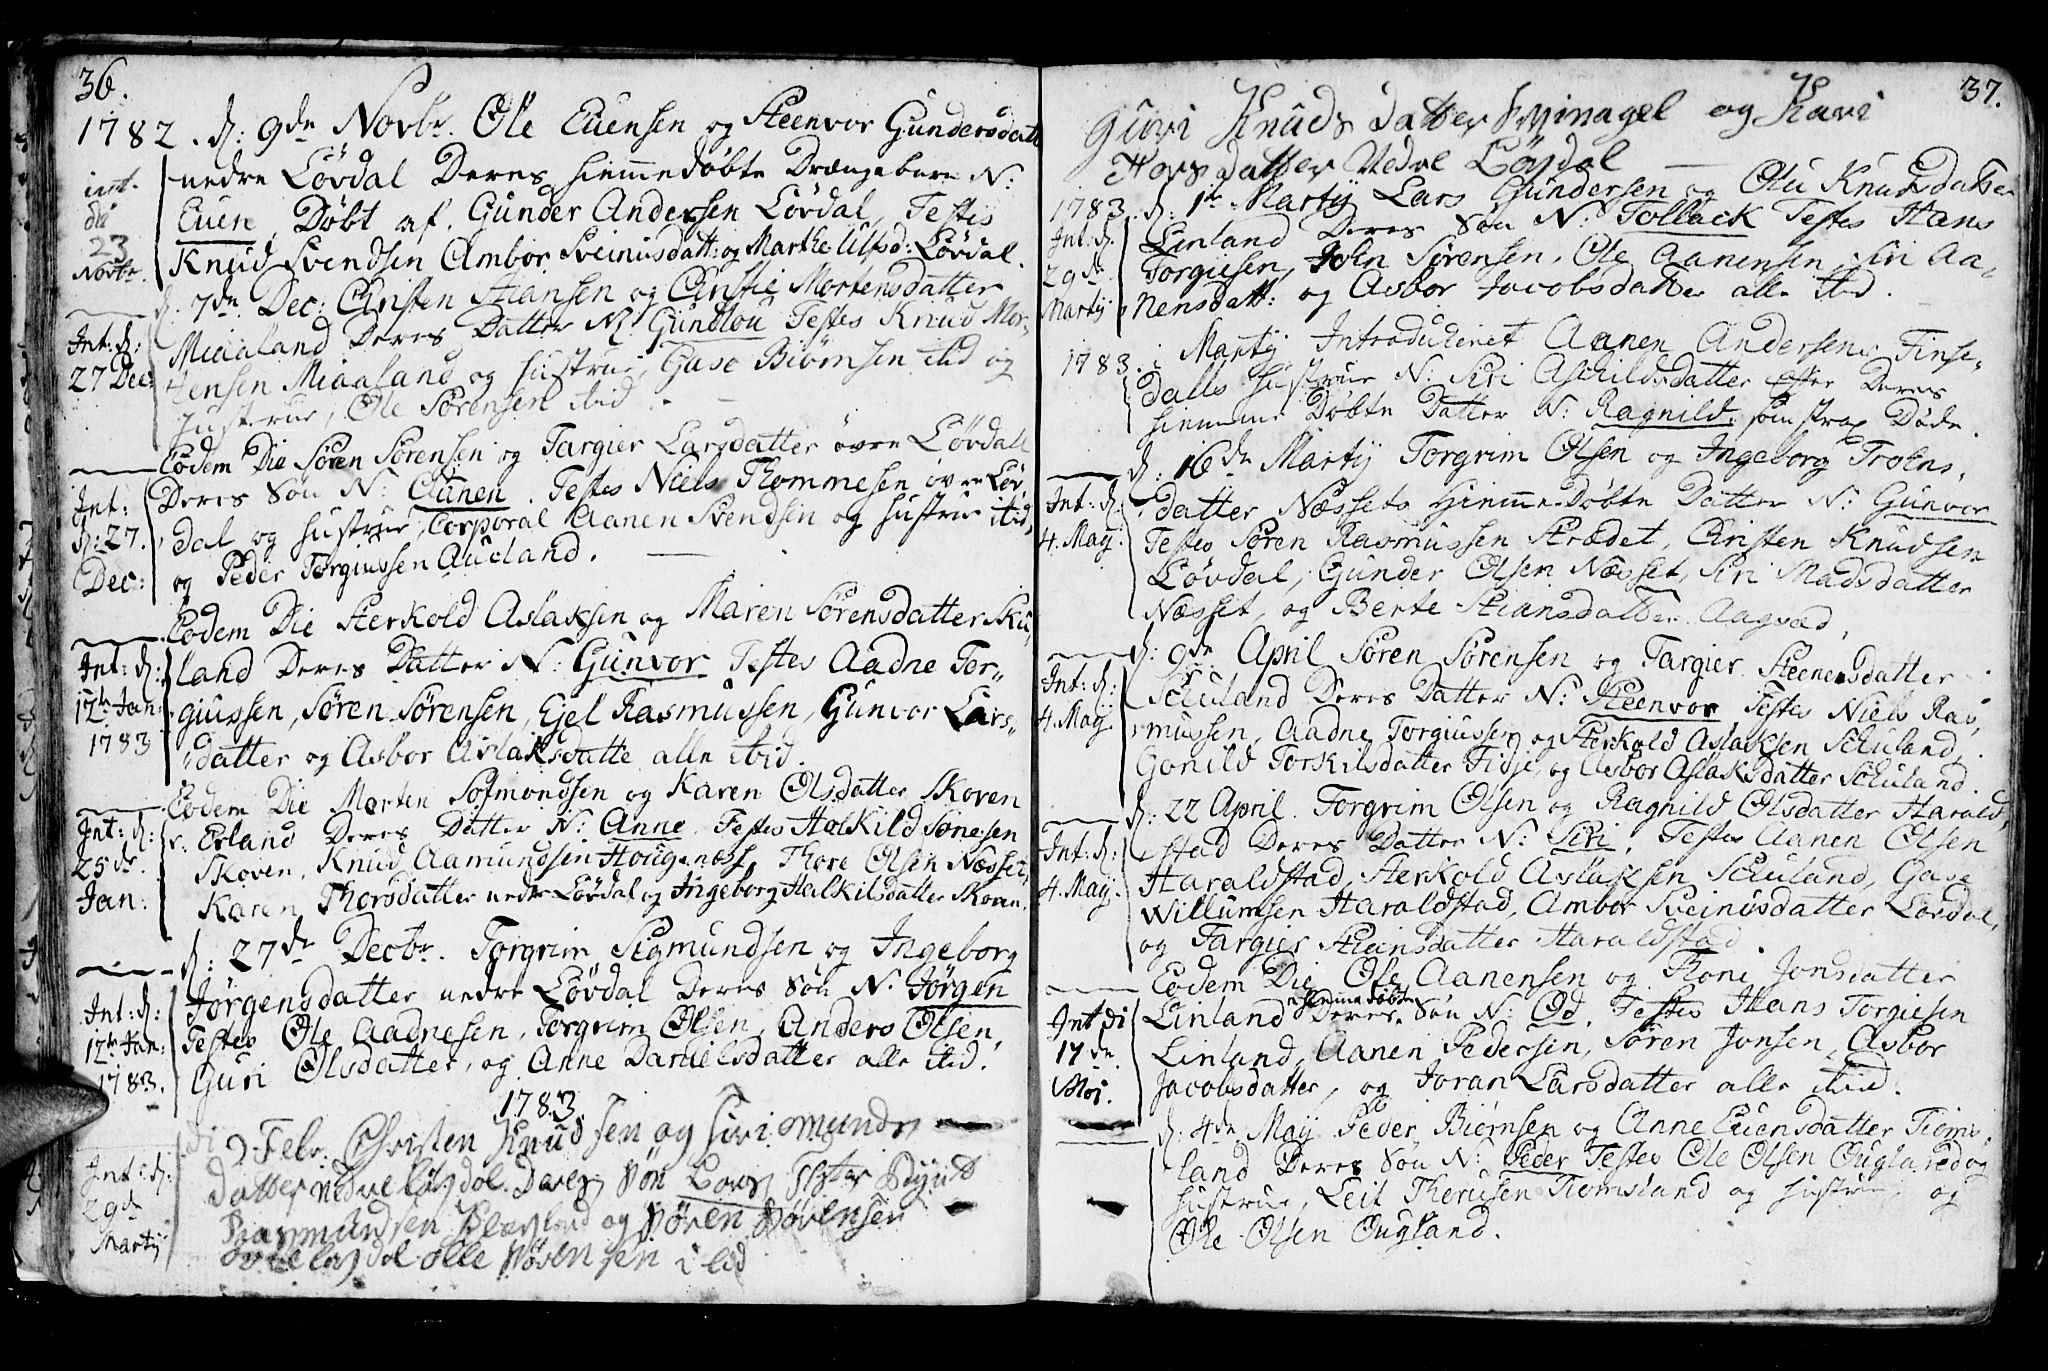 36.
1782. d: 9de Novbr. Ole Evensen og Steenvor Gundersdatt
nedre Lövdal Deres hiemmedøbte Drængebarn N:
int.
Even, Døbt af Gunder Andersen Lövdal, Testes
di
23
Novbr.
Knud Svendsen Ambor Sveinusdatt: og Marthe Ulfsd: Lövdal.
d. 7de Dec: Christen Stiansen og Christie Mortensdatter
Miaaland Deres Datter N: Gundlou Testes Knud Mor-
Int: d:
27 Dec:
tensen Miaaland og hustrue, Gase Biørnsen ibid og
hustrue, Ole Sörensen ibid.
Eodem Die Sören Sörensen og Targier Larsdatter övre Lövdall
Deres Søn N: Aanen. Testes Niels Thommesen övre Löv
Int:
d: 27.
Dec:
dal og hustrue, Corporal Aanen Svendsen og hustrue ibid,
og Peder Torgiussen Aueland.
Eodem Die Sterkold Aslaksen og Maren Sörensdatter Sku-
land Deres Datter N: Gunvor Testes Aadne Tor-
Int: d:
12te Jan:
1783
giussen, Søren Sørensen, Ejel Rasmussen, Gunvor Lars-
datter og Asbor Aslaksdatte alle ibid.
Eodem Die Morten Sofmondsen og Karen Olsdatter Skoven
Int: d:
25de
Jan:
v. Erland Deres Datter N: Anne. Testes Halkild Sønesen
Skoven, Knud Aamundsen Hougenæss, Thore Olsen Næsset,
Karen Thorsdatter nedre Lövdal og Ingeborg Halkilsdatter Skoven.
d: 27de Decbr. Torgrim Sigmundsen og Ingeborg
Jørgensdatter nedre Lövdal Deres Søn N: Jørgen
Int: d:
12te Jan:
1783.
Testes Ole Aadnesen, Torgrim Olsen, Anders Olsen,
Guri Olsdatter, og Anne Danielsdatter alle ibid.
1783
di 2 Febr. Christen Knudsen og Siri
Int: d:
29de
Martij
datter nedre Løvdal Deres Søn Lars
og Søren Sørensen
Løvdal Olle Sørensen ibid

37.
Guri Knuds datter Svinagel og Kari
Hors datter Nedre Löydal
1783. d: 1te Martij Lars Gundersen og Olu Knudsdatter
Int: d.
29de
Martij
Linland Deres Søn N: Tollack Testes Hans
Torgiesen, John Sörensen, Ole Aanensen, Siri Aa-
nensdatt: og Asbor Jacobsdatter alle ibid.
1783. i Martij Introduceret Aanen Andersens Finse-
dalls hustrue N: Siri Aschildsdatter efter Deres
hiemme Døbte Datter N: Ragnild, som strax Døde.
d: 16de Martij Torgrim Olsen og Ingeborg Troens-
Int: d:
4. Maij.
datter Næssets Hiemme-Døbte Datter N: Gunvor
Testes Sören Rasmussen Strædet, Christen Knudsen
Lövdal, Gunder Olsen Næsset, Siri Madsdatter
Næsset, og Berte Stiansdatter Aagsæd,
d: 9de April Sören Sörensen og Targier Steenersdatter
Int: d:
4. Maij.
Schuland Deres Datter N: Steenvor Testes Niels Ras-
mussen, Aadne Torgiussen og Sterkold Aslaksen Schuland,
Gonild Torkilsdatter Fidje, og Asbor Aslaksdatter Schuland.
d: 22 April. Torgrim Olsen og Ragnild Olsdatter Harald-
Int: d:
4. Maij.
stad Deres Datter N: Siri. Testes Aanen Olsen
Haraldstad, Sterkold Aslaksen Schuland, Gase
Willumsen Haraldstad, Ambor Sveinusdatter Lövdal,
og Targier Stiansdatter Haraldstad.
Eodem Die Ole Aanensen og Thone Jonsdatter
hiemmedøbte
Linland Deres Søn N: Od. Testes Hans Torgiesen
Int di
17de
Moi.
Linland, Aanen Pedersen, Sören Jonsen, Asbor
Jacobsdatter, og Joran Larsdatter alle ibid.
d: 4de Maij Peder Biørnsen og Anne Evensdatter Tioms-
land Deres Søn N: Peder Testes Ole Olsen Ougland og
hustrue, Leif Theriesen Tiomsland og hustrue, og
Ole Olsen Ougland.